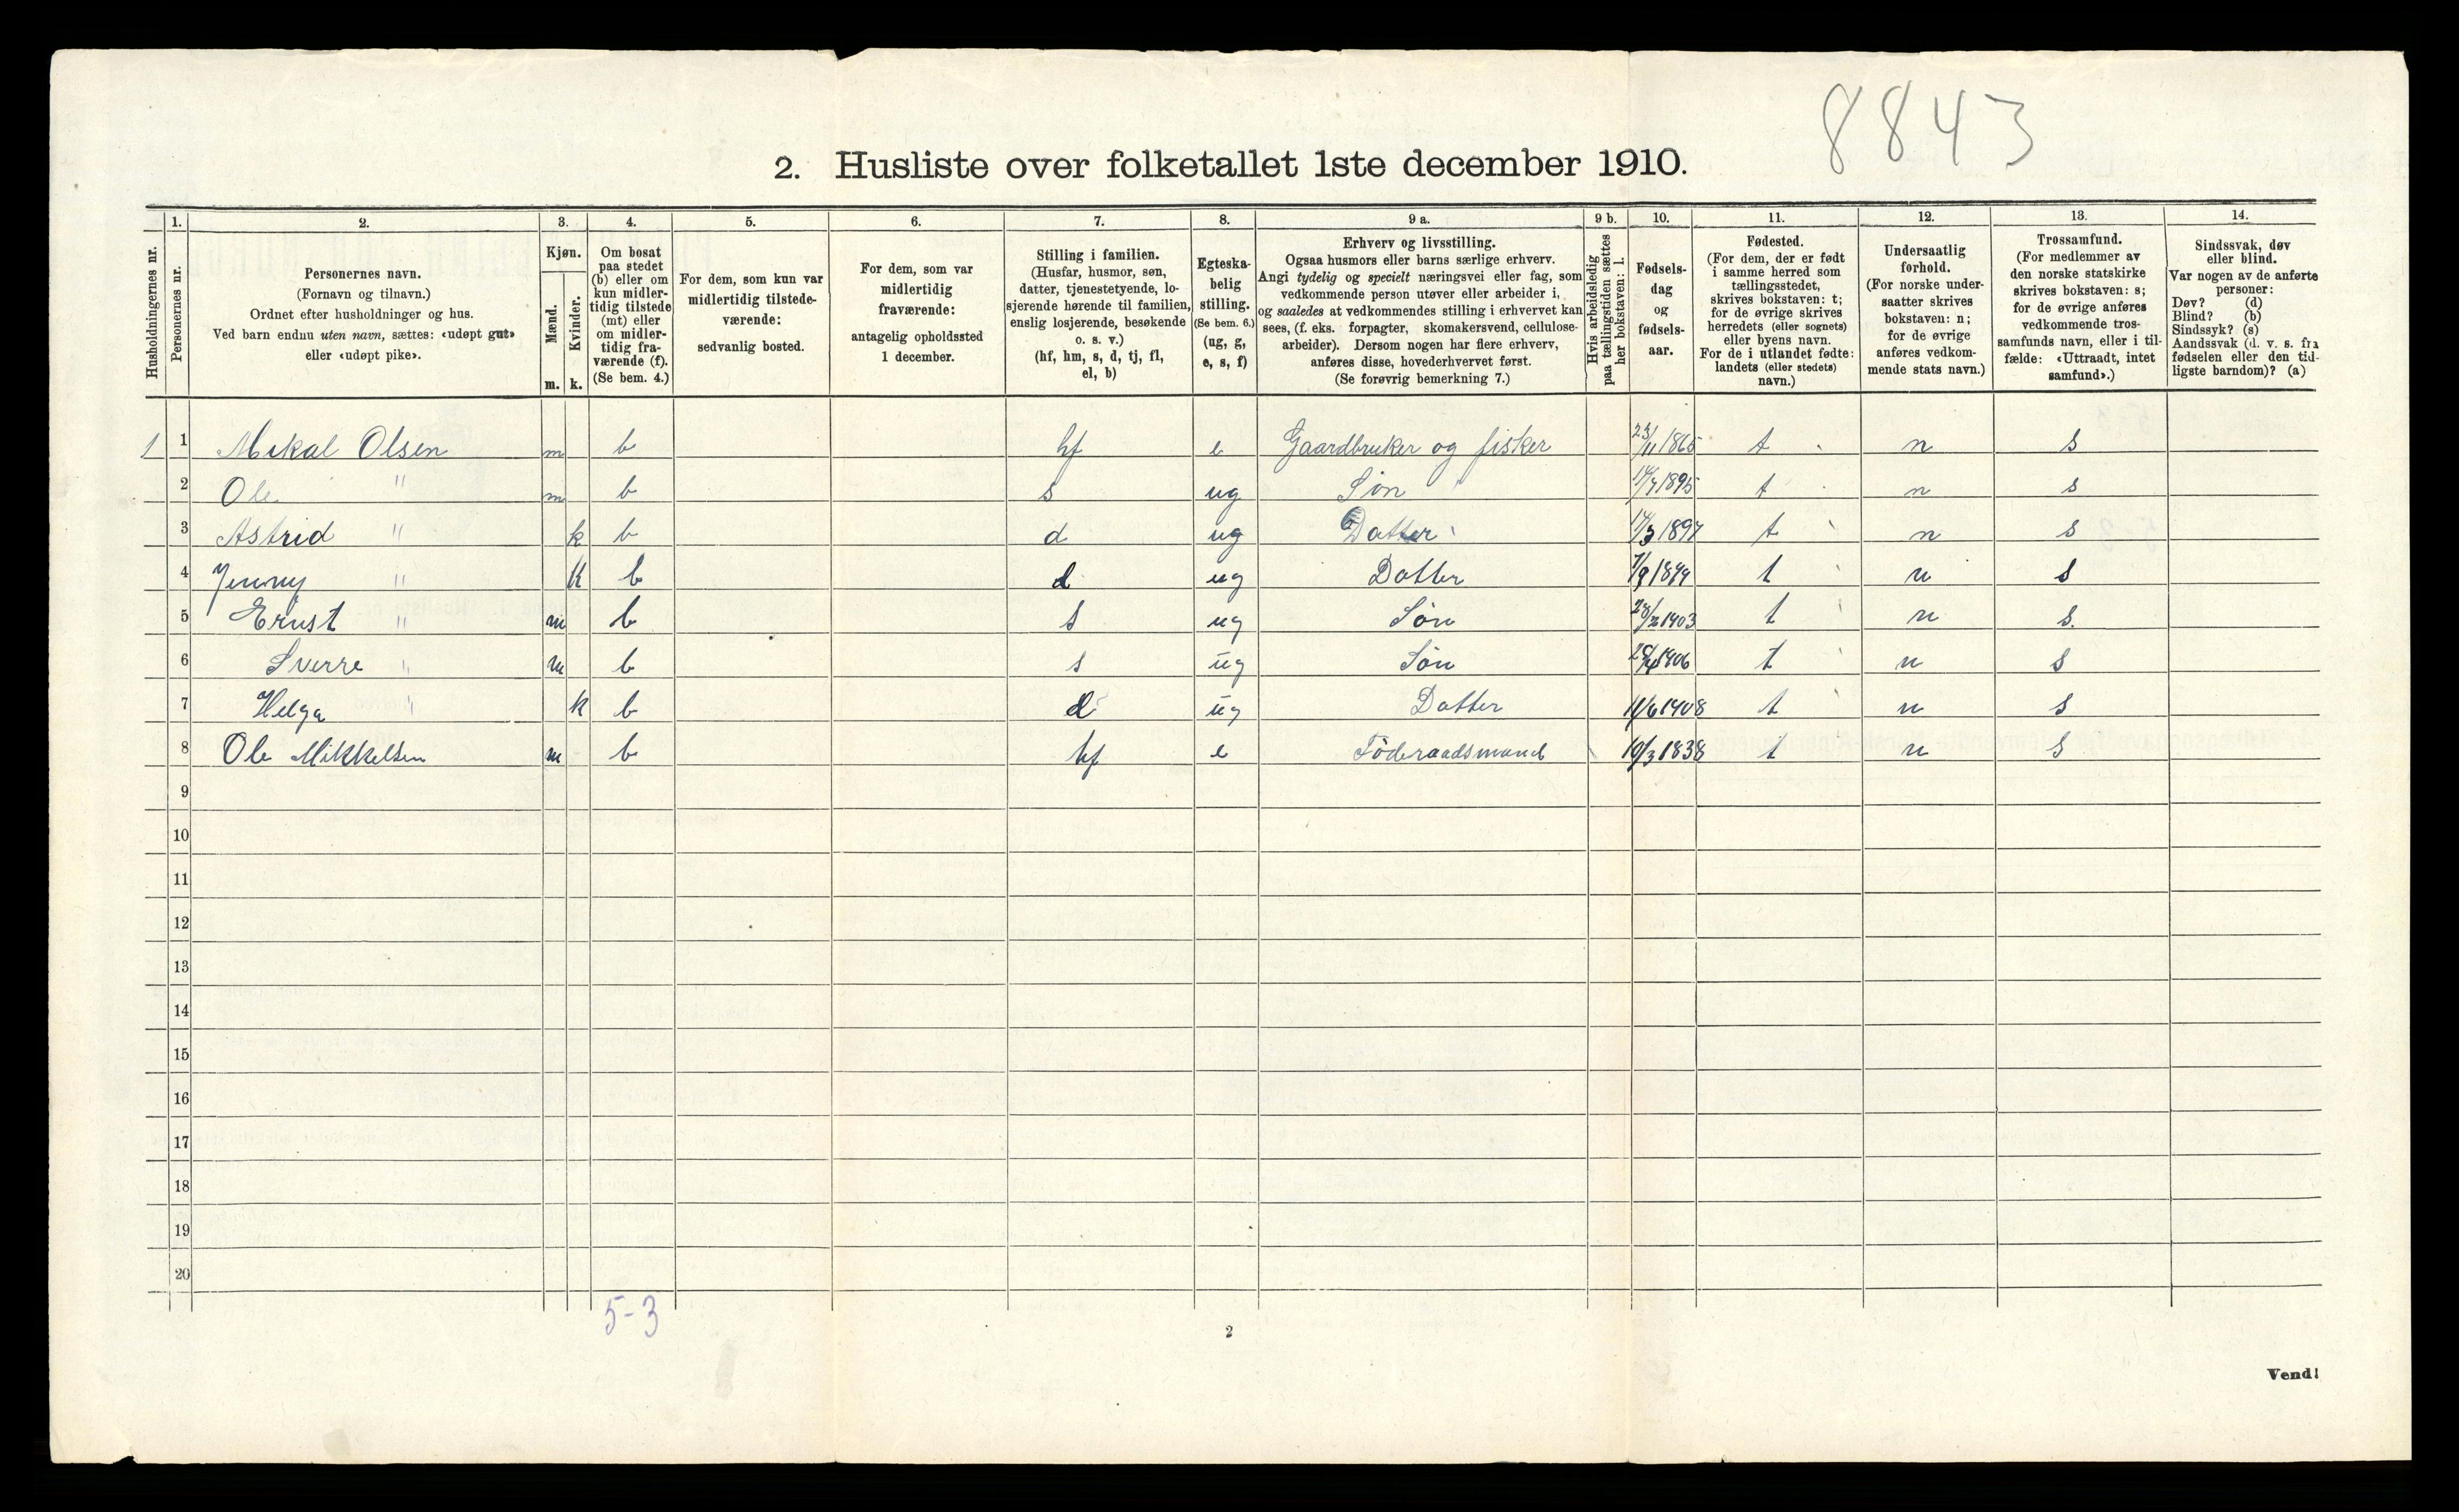 8843
2. Husliste over folketallet 1ste december 1910.
Husholdningernes nr.
1.
Personernes nr.
2.
Personernes navn.
(Fornavn og tilnavn.)
Ordnet efter husholdninger og hus.
Ved barn endnu uten navn, sættes: «udøpt gut»
eller «udøpt pike».
3.
Kjøn.
Mænd.
Kvinder.
m. k.
4.
Om bosat
paa stedet
(b) eller om
kun midler-
tidig tilstede
(mt) eller
om midler-
tidig fra-
værende (f).
(Se bem. 4.)
5.
For dem, som kun var
midlertidig tilstede-
værende:
sedvanlig bosted.
6.
For dem, som var
midlertidig
fraværende:
antagelig opholdssted
1 december.
7.
Stilling i familien.
(Husfar, husmor, søn,
datter, tjenestetyende, lo-
sjerende hørende til familien,
enslig losjerende, besøkende
o. s. v.)
(hf, hm, s, d, tj, fl,
el, b)
8.
Egteska-
belig
stilling.
(Se bem. 6.)
(ug, g,
e, s, f)
9 a.
Erhverv og livsstilling.
Ogsaa husmors eller barns særlige erhverv.
Angi tydelig og specielt næringsvei eller fag, som
vedkommende person utøver eller arbeider i,
og saaledes at vedkommendes stilling i erhvervet kan
sees, (f. eks. forpagter, skomakersvend, cellulose-
arbeider). Dersom nogen har flere erhverv,
anføres disse, hovederhvervet først.
(Se forøvrig bemerkning 7.)
9 b.
Hvis arbeidsledig
paa tællingstiden sættes
her bokstaven: l.
10.
Fødsels-
dag
og
fødsels-
aar.
11.
Fødested.
(For dem, der er født
i samme herred som
tællingsstedet,
skrives bokstaven: t;
for de øvrige skrives
herredets (eller sognets)
eller byens navn.
For de i utlandet fødte:
landets (eller stedets)
navn.)
12.
Undersaatlig
forhold.
(For norske under-
saatter skrives
bokstaven: n;
for de øvrige
anføres vedkom-
mende stats navn.)
13.
Trossamfund.
(For medlemmer av
den norske statskirke
skrives bokstaven: s;
for de øvrige anføres
vedkommende tros-
samfunds navn, eller i til-
fælde: «Uttraadt, intet
samfund».)
14.
Sindssvak, døv
eller blind.
Var nogen av de anførte
personer:
Døv? (d)
Blind? (b)
Sindssyk? (s)
Aandssvak (d. v. s. fra
fødselen eller den tid-
ligste barndom)? (a)
1 1 Mikal Olsen m b hf e Gaardbruker og fisker 23/11 1865 t n s
2 Ole " m b s ug Søn 1895 t n s
3 Astrid " k b d ug Datter 1897 t n s
4 Jenny " k b d ug Datter 7/9 1899 t n s
5 Ernst " m b s ug Søn 1903 t n s.
6 Sverre " m b s ug Søn 1906 t n s
7 Helga " k b d ug Datter 11/6 1908 t n s
8 Ole Mikkelsen m b hf e Föderaadsmand 10/3 1838 t n s
9
10
11
12
13
14
15
16
17
18
19
20
5-3
2
Vend!